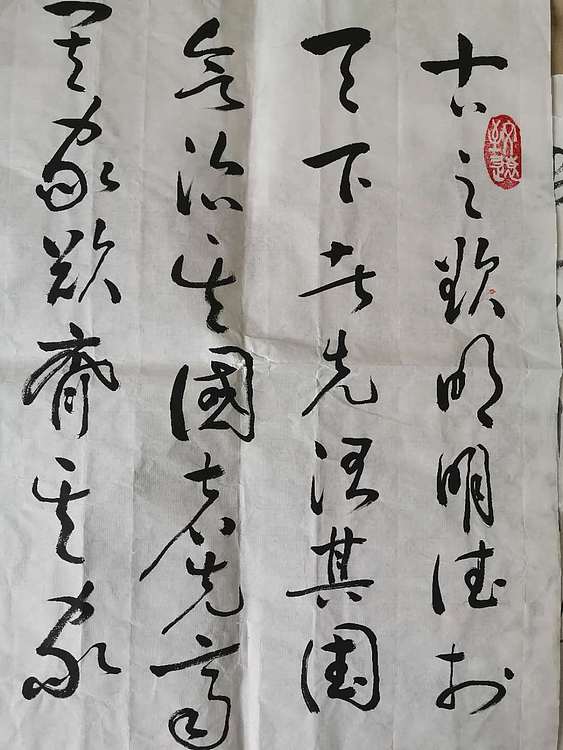 古之欲明明德於
天下者先治其国
欲治其國者先齊
其家欲齊其家